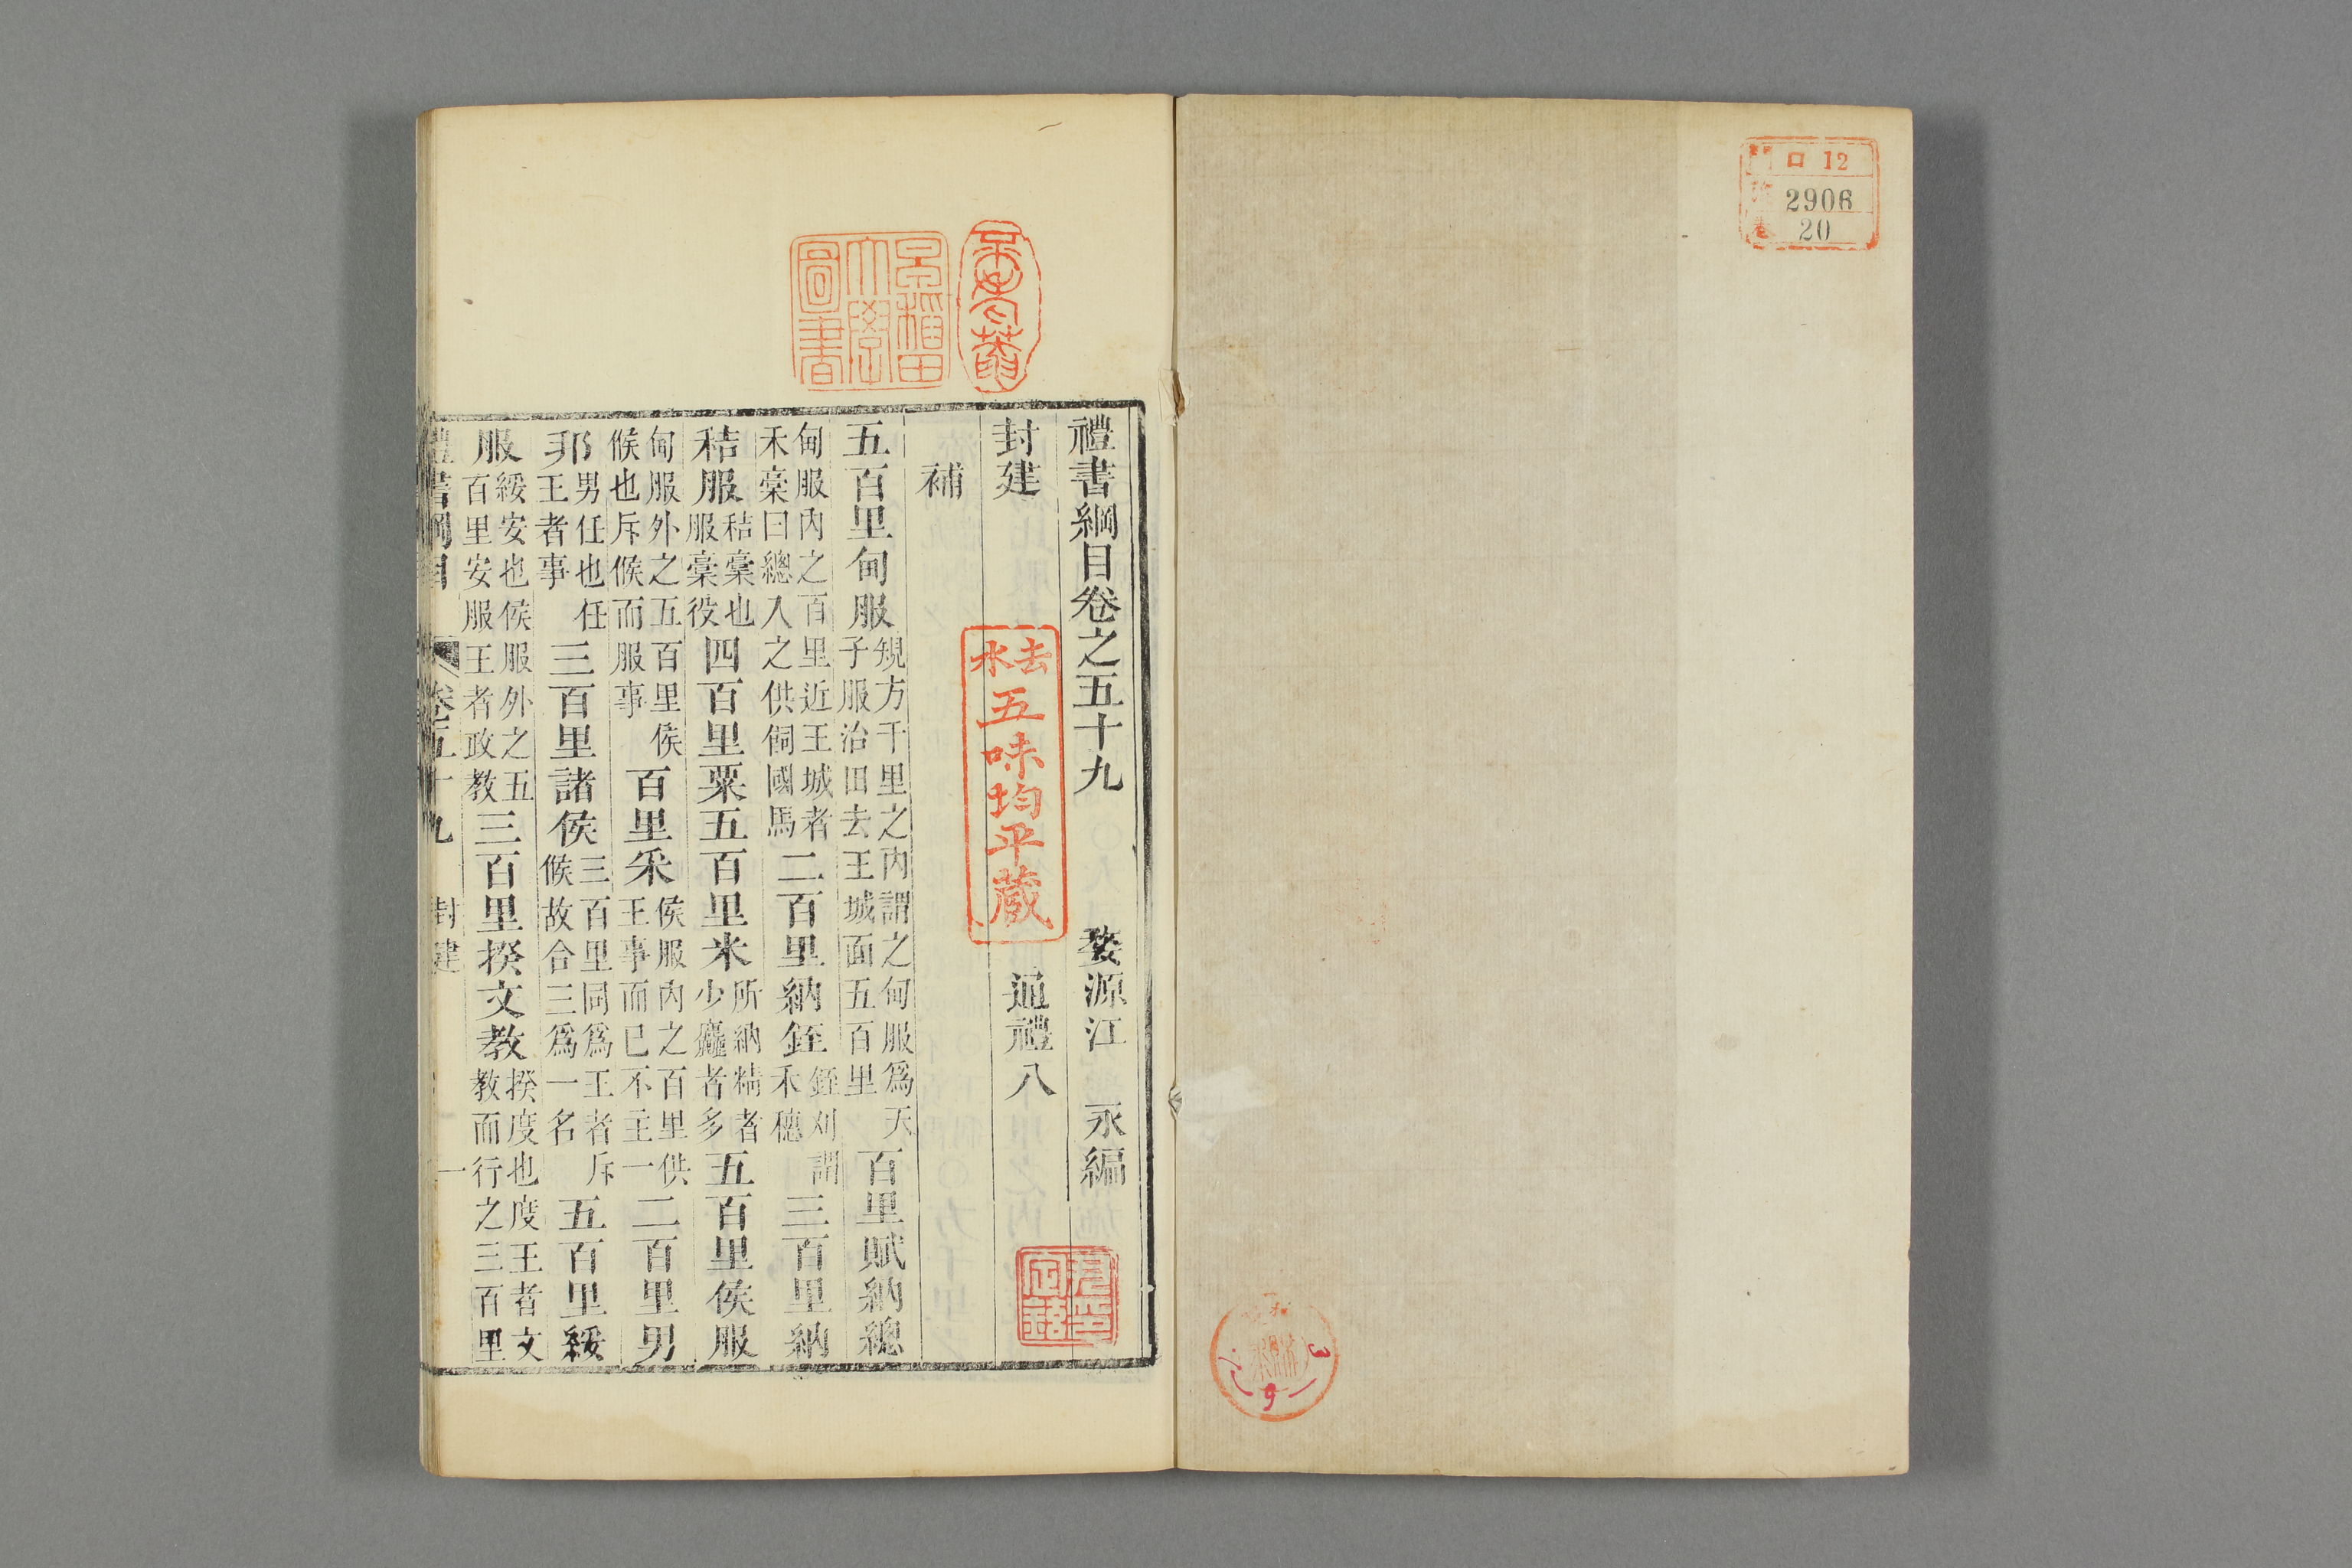 門 ロ 12
2906
卷 20
禮書綱目卷之五十九 婺源江 永編
封建 通禮八
補
五百里甸服規方千里之內謂之甸服爲天子服治田去王城面五百里百里賦納總
甸服內之百里近王城者禾稾曰總入之供飼國馬二百里納銍銍刈謂禾穗三百里納
秸服秸稾也服稾役四百里粟五百里米所納精者少麤者多五百里侯服
甸服外之五百里侯候也斥候而服事百里采侯服內之百里供王事而已不主一二百里男
邦男任也任王者事三百里諸侯三百里同爲王者斥候故合三爲一名五百里綏
服綏安也侯服外之五百里安服王者政教三百里揆文教揆度也度王者文教而行之三百里
禮書綱目 卷五十九 封建 一
早稻田大學圖書
去水五味均平蔵
3
6